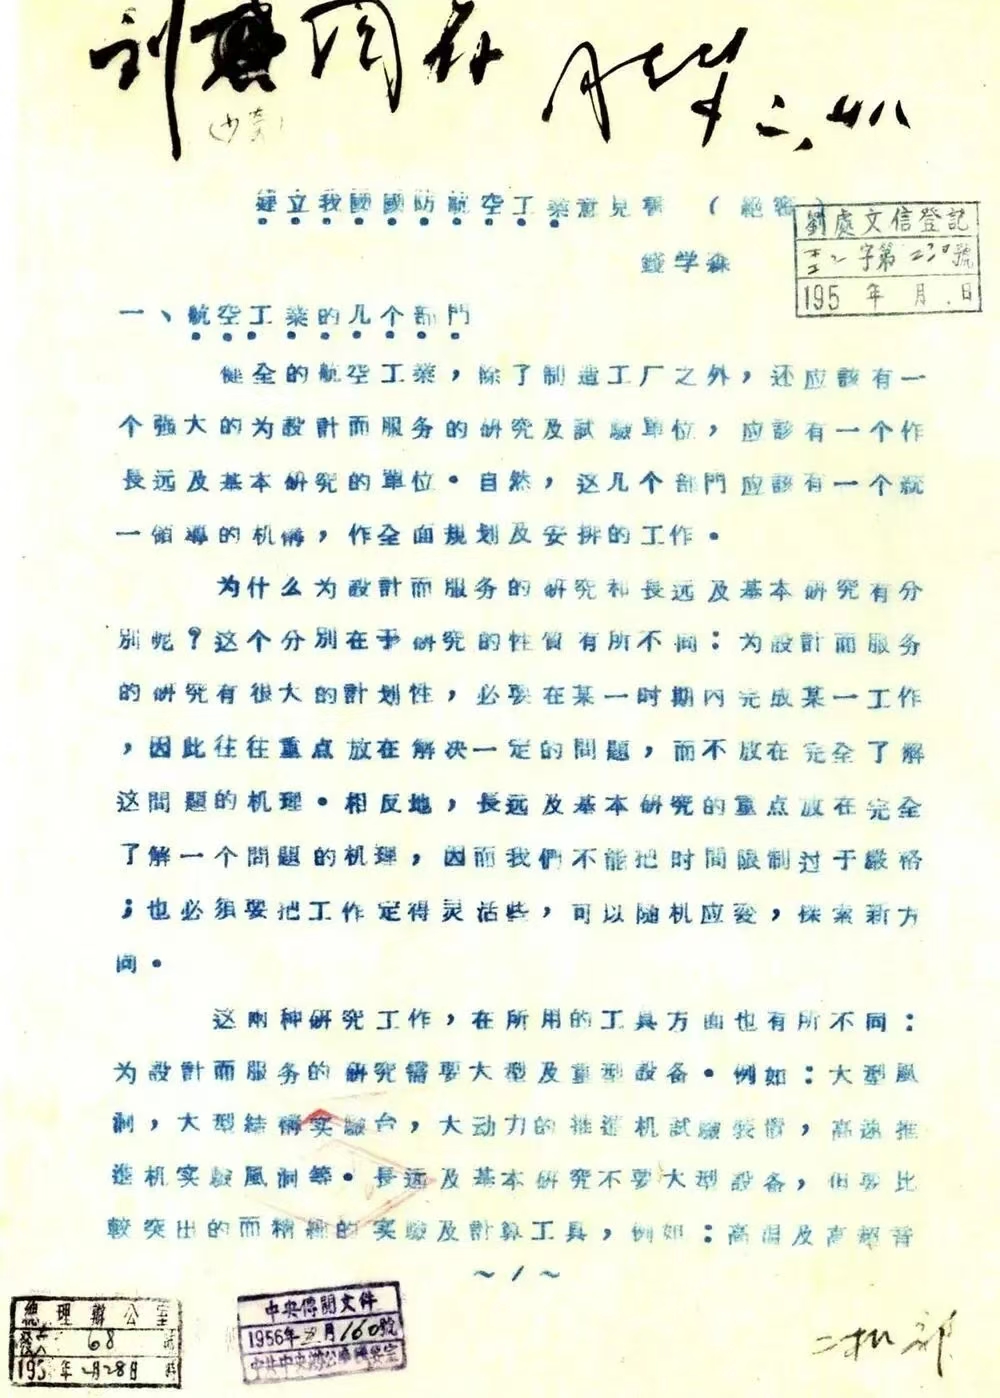 刘 阅存
(少奇)
二、廿八
建立我國國防航空工業意見書 (絕密)
劉處文信登記
字第二三〇號
195 年 月 日
錢学森
一、航空工業的几个部門
健全的航空工業，除了制造工厂之外，还应該有一
个強大的为設計而服务的研究及試驗單位，应該有一个作
長远及基本研究的單位。自然，这几个部門应該有一个統
一領導的机構，作全面規划及安排的工作。
为什么为設計而服务的研究和長远及基本研究有分
別呢？这个分別在于研究的性質有所不同：为設計而服务
的研究有很大的計划性，必要在某一时期内完成某一工作
，因此往往重点放在解决一定的問題，而不放在完全了解
这問題的机理。相反地，長远及基本研究的重点放在完全
了解一个問題的机理，因而我們不能把时間限制过于嚴格
；也必須要把工作定得灵活些，可以随机应变，探索新方
向。
这兩种研究工作，在所用的工具方面也有所不同：
为設計而服务的研究需要大型及重型設备。例如：大型風
洞，大型結構实驗台，大动力的推進机試驗裝備，高速推
進机实驗風洞等。長远及基本研究不要大型設备，但要比
較突出的而精細的实驗及計算工具，例如：高温及高超音
～1～
總理辦公室
68 號
195 年2月28日
中央傳閱文件
1956年2月160號
中共中央辦公廳機要室
二机部